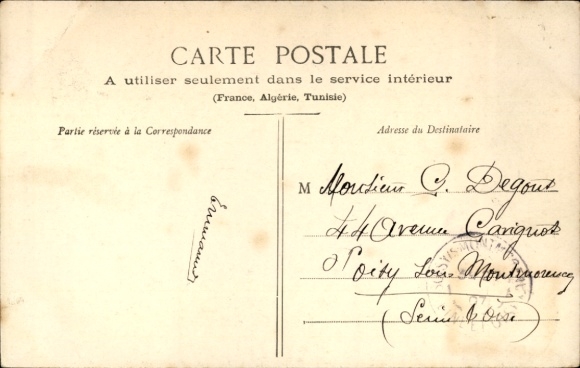 CARTE POSTALE
A utiliser seulement dans le service intérieur
(France, Algérie, Tunisie)
Partie réservée à la Correspondance
Adresse du Destinataire
M Monsieur C. Degout
44 Avenue Carignot
Soisy sous Montmorency
(Seine & Oise)